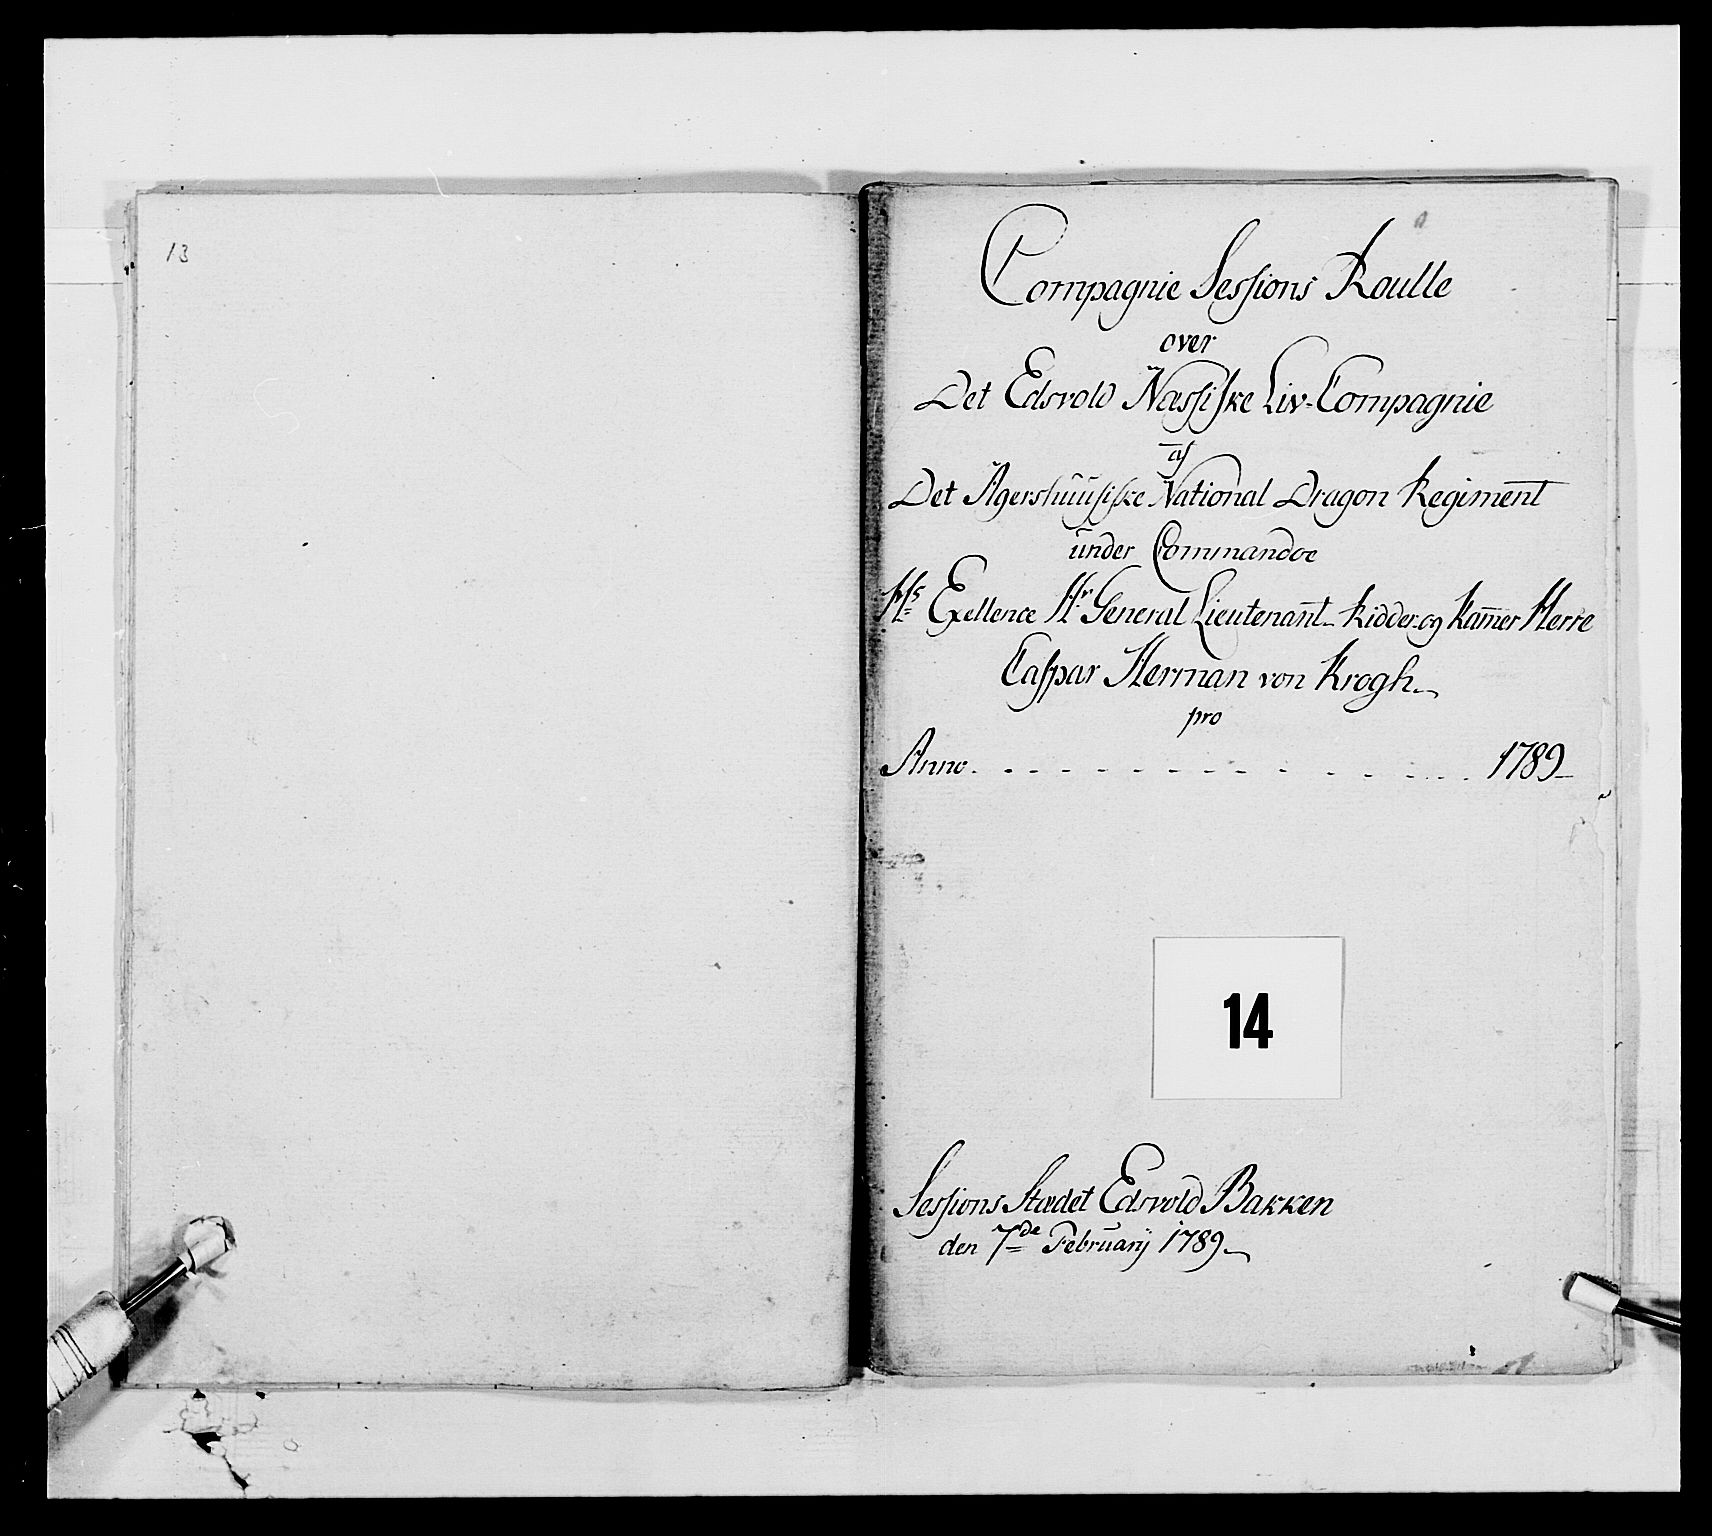 13
Compagnie Sessions Roulle
over
Det Edsvold Nassiske Liv-Compagnie
af
Det Agershuusiske National Dragon Regiment
under Commandoe
Hs Exellence Hr General Lieutenant- Ridder og Kam̅er Herre
Caspar Herman von Krogh
pro
Anno. - - - - - - - - - - - - - - - . . 1789
14
Sessions Stædet Edsvold Bakken
den 7de Februarij 1789